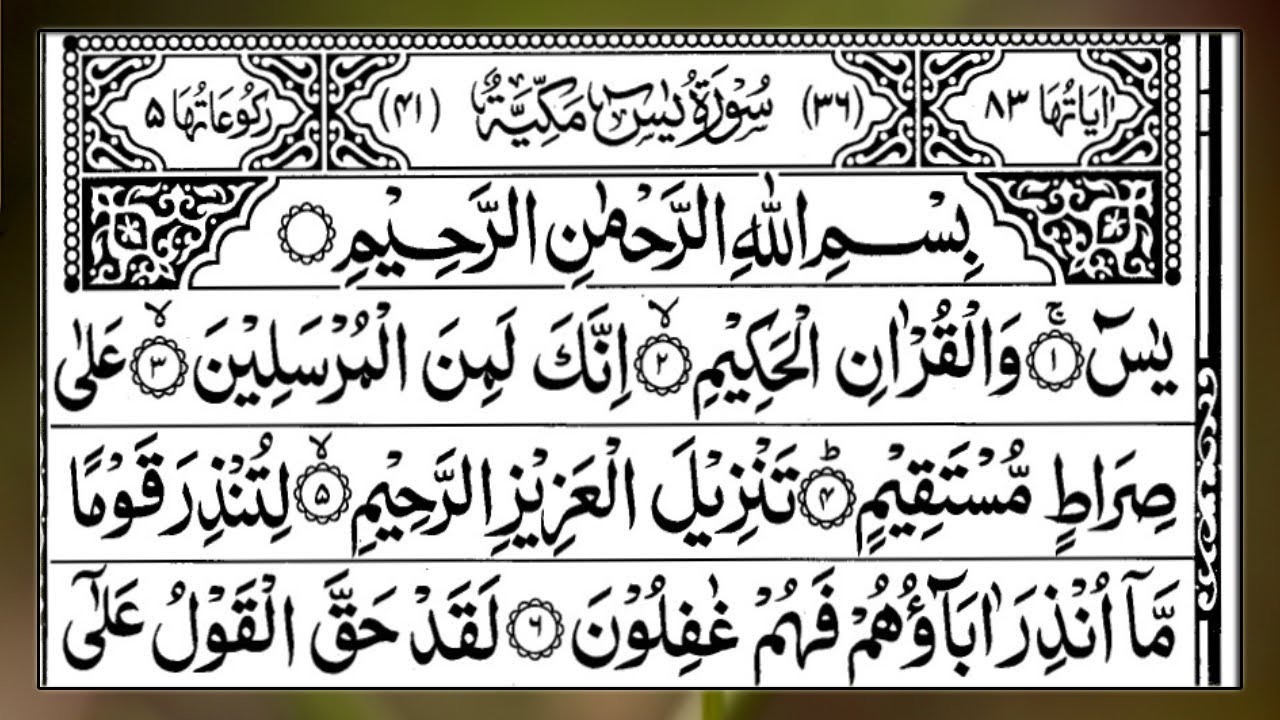 اٰيَاتُهَا ۸۳ (۳۶) سُوْرَةُ يٰسٓ مَكِّيَّةٌ (۴۱) رُكُوْعَاتُهَا ۵
بِسْمِ اللّٰهِ الرَّحْمٰنِ الرَّحِيْمِ
يٰسٓ ۚ﴿۱﴾ وَالْقُرْاٰنِ الْحَكِيْمِ ۙ﴿۲﴾ اِنَّكَ لَمِنَ الْمُرْسَلِيْنَ ۙ﴿۳﴾ عَلٰى
صِرَاطٍ مُّسْتَقِيْمٍ ؕ﴿۴﴾ تَنْزِيْلَ الْعَزِيْزِ الرَّحِيْمِ ۙ﴿۵﴾ لِتُنْذِرَ قَوْمًا
مَّاۤ اُنْذِرَ اٰبَآؤُهُمْ فَهُمْ غٰفِلُوْنَ ﴿۶﴾ لَقَدْ حَقَّ الْقَوْلُ عَلٰۤى